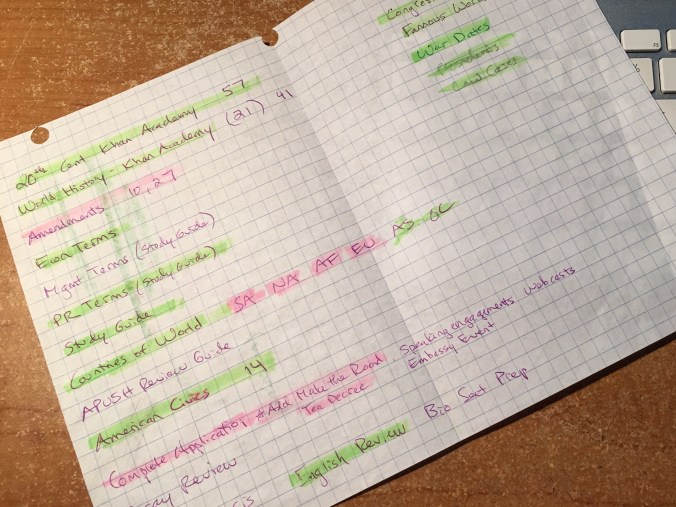 20th Cent Khan Academy 57
World History - Khan Academy (21) 41
Amendments 10, 27
Econ Terms
Mgmt Terms (Study Guide)
PR Terms (Study Guide)
Study Guide
Countries of World SA NA AF EU AS OC
APUSH Review Guide
American Civics 14
Complete Application #Add Make the Road
Tea Decree
Review
English Review
Famous
War Dates
Presidents
Court Cases
Speaking engagements Webcasts
Embassy Event
Bio Sect Prep